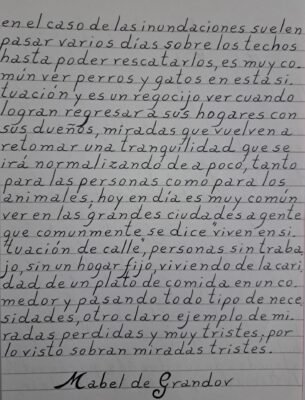 en el caso de las inundaciones suelen
pasar varios días sobre los techos
hasta poder rescatarlos, es muy co-
mún ver perros y gatos en está si-
tuación y es un regocijo ver cuando
logran regresar á sus hogares con
sus dueños, miradas que vuelven a
retomar una tranquilidad que se
irá normalizando de a poco, tanto
para las personas como para los
animales, hoy en día es muy común
ver en las grandes ciudades a gente
que comunmente se dice "viven en si-
tuación de calle", personas sin traba-
jo, sin un hogar fijo, viviendo de la cari-
dad de un plato de comida en un co-
medor y pasando todo tipo de nece-
sidades, otro claro ejemplo de mi-
radas perdidas y muy tristes, por
lo visto sobran miradas tristes.
Mabel de Grandov